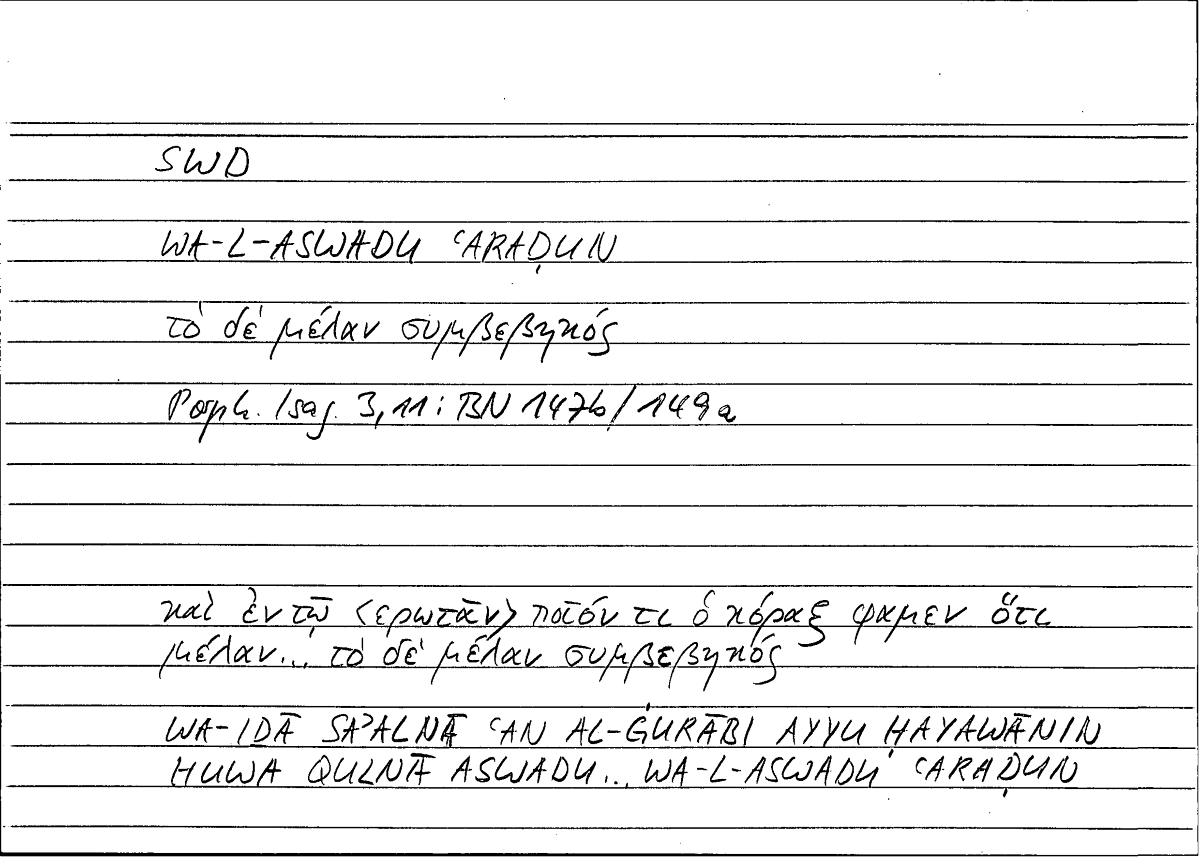 SWD
WA-L-ASWADU ʿARAḌUN
τὸ δὲ μέλαν συμβεβηκός
Porph. Isag. 3,11: BN 147b/149a
καὶ ἐν τῷ <ερωτᾶν> ποῖόν τι ὁ κόραξ φαμεν ὅτι
μέλαν... τὸ δὲ μέλαν συμβεβηκός
WA-IDĀ SAʾALNĀ ʿAN AL-ĠURĀBI AYYU ḤAYAWĀNIN
HUWA QULNĀ ASWADU... WA-L-ASWADU ʿARAḌUN